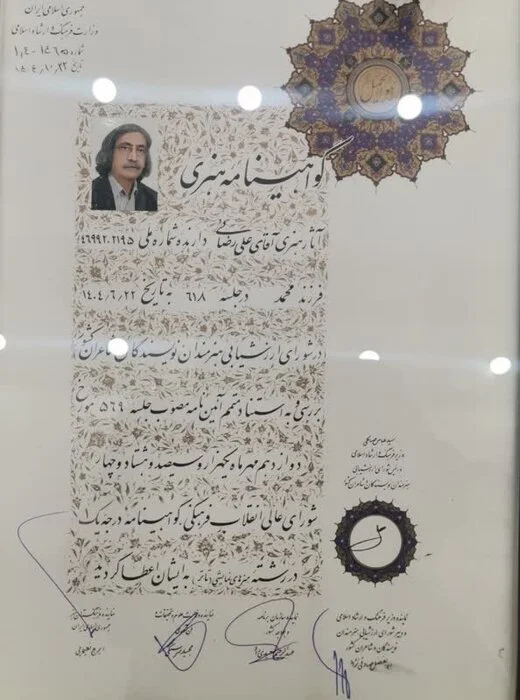 جمهوری اسلامی ایران
وزارت فرهنگ و ارشاد اسلامی
شماره
تاریخ
گواهینامه هنری
آثار هنری آقای علی رضائی دارنده شماره ملی ۴۶۹۹۲۰۲۱۹۵
فرزند محمد در جلسه ۶۱۸ به تاریخ ۱۴۰۴/۶/۲۲
در شورای ارزشیابی هنرمندان نویسندگان و شاعران کشور
بررسی و به استناد متمم آئین نامه مصوب جلسه ۵۶۹ مورخ
دوازدهم مهر ماه یکهزار و سیصد و هشتاد و چهار
شورای عالی انقلاب فرهنگی گواهینامه درجه یک
در رشته هنرهای نمایشی (تئاتر) به ایشان اعطا گردید
وزیر فرهنگ و ارشاد اسلامی
و رئیس شورای ارزشیابی
هنرمندان، نویسندگان و شاعران کشور
نماینده وزیر فرهنگ و ارشاد اسلامی
و دبیر شورای ارزشیابی هنرمندان
نویسندگان و شاعران کشور
نماینده سازمان برنامه
و بودجه کشور
نماینده وزارت علوم، تحقیقات
نماینده فرهنگستان هنر
جمهوری اسلامی ایران